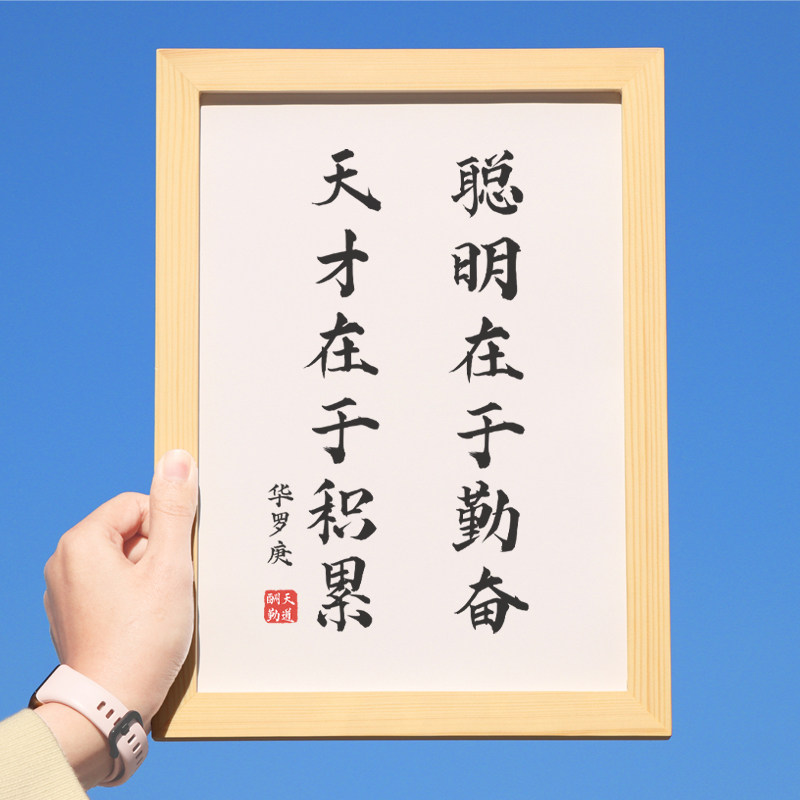 聪明在于勤奋
天才在于积累
华罗庚
天道
酬勤